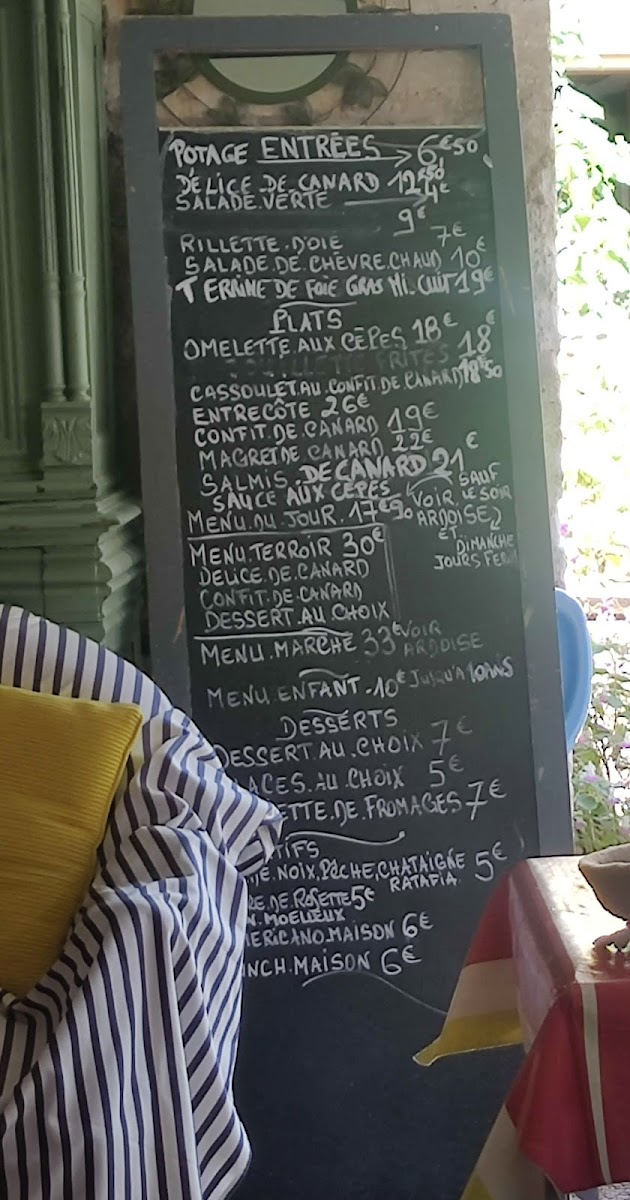 POTAGE ENTRÉES 6€50
DÉLICE.DE.CANARD 12€50
SALADE.VERTE 4€
9€
RILLETTE.D'OIE 7€
SALADE.DE.CHEVRE.CHAUD 10€
TERRINE DE FOIE GRAS MI.CUIT 19€
PLATS
OMELETTE AUX CÊPES 18€
FRITES 18€
CASSOULET.AU.CONFIT.DE.CANARD 18€50
ENTRECÔTE 26€
CONFIT.DE.CANARD 19€
MAGRET DE CANARD 22€
SALMIS.DE CANARD 21€
SAUCE AUX CÊPES
MENU.DU.JOUR.17€90
VOIR ARDOISE
SAUF LE SOIR
ET DIMANCHE
JOURS FER
MENU.TERROIR 30€
DELICE.DE.CANARD
CONFIT.DE.CANARD
DESSERT.AU.CHOIX
MENU.MARCHE 33€ VOIR ARDOISE
MENU.ENFANT.10€ JUSQU'A 10ANS
DESSERTS
DESSERT.AU.CHOIX 7€
LACES.AU.CHOIX 5€
ETTE.DE.FROMAGES 7€
TIFS
NOIX,PÊCHE,CHATAIGNE 5€
RATAFIA
RE.DE.ROSETTE 5€
N.MOELLEUX
MERICANO.MAISON 6€
NCH.MAISON 6€